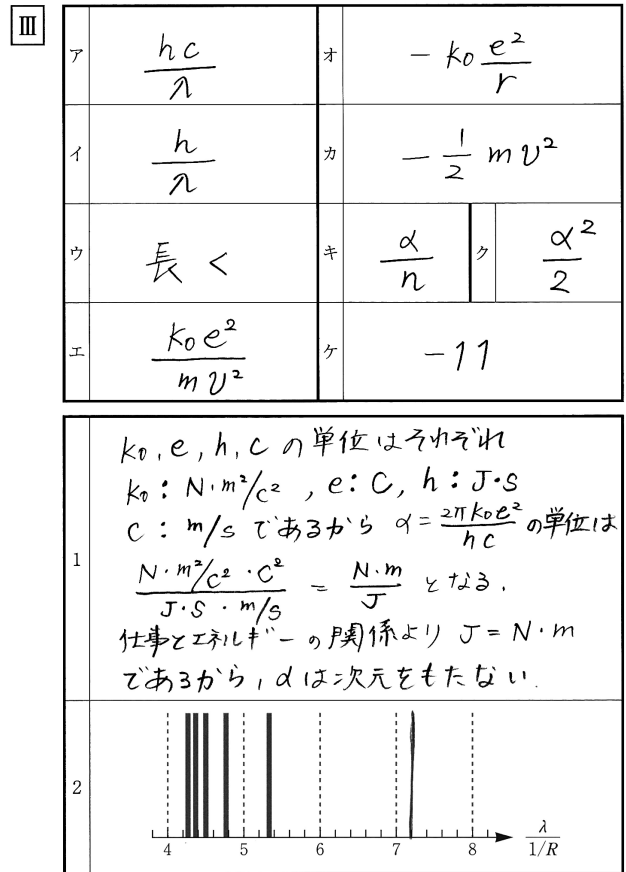 III
ア hc/λ オ -k₀ e²/r
イ h/λ カ -1/2 mv²
ウ 長く キ α/n ク α²/2
エ k₀e²/mv² ケ -11
1
k₀, e, h, c の単位はそれぞれ
k₀ : N·m²/C² , e: C, h : J·S
C : m/s であるから α = 2πk₀e²/hc の単位は
N·m²/C²·C² / J·S·m/s = N·m/J となる.
仕事とエネルギーの関係より J = N·m
であるから, αは次元をもたない.
2
4 5 6 7 8 λ/1/R